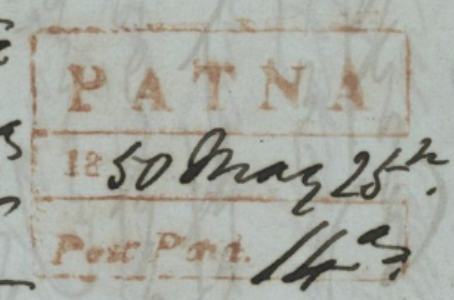 PATNA
1850 May 25th.
Post Paid. 14as.